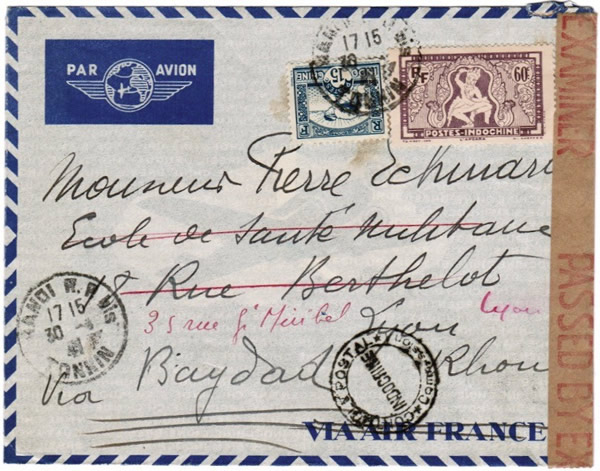 PAR AVION
17 15
15
RF 60c
POSTES-INDOCHINE
EXAMINER
Monsieur Pierre
Ecole de Santé Militaire
18 Rue Berthelot
35 rue
Lyon
Lyon
Via Bagdad
HANOI R.P
17 15
30
41
TONKIN
POSTAL
INDOCHINE
VIA AIR FRANCE
PASSED BY EX